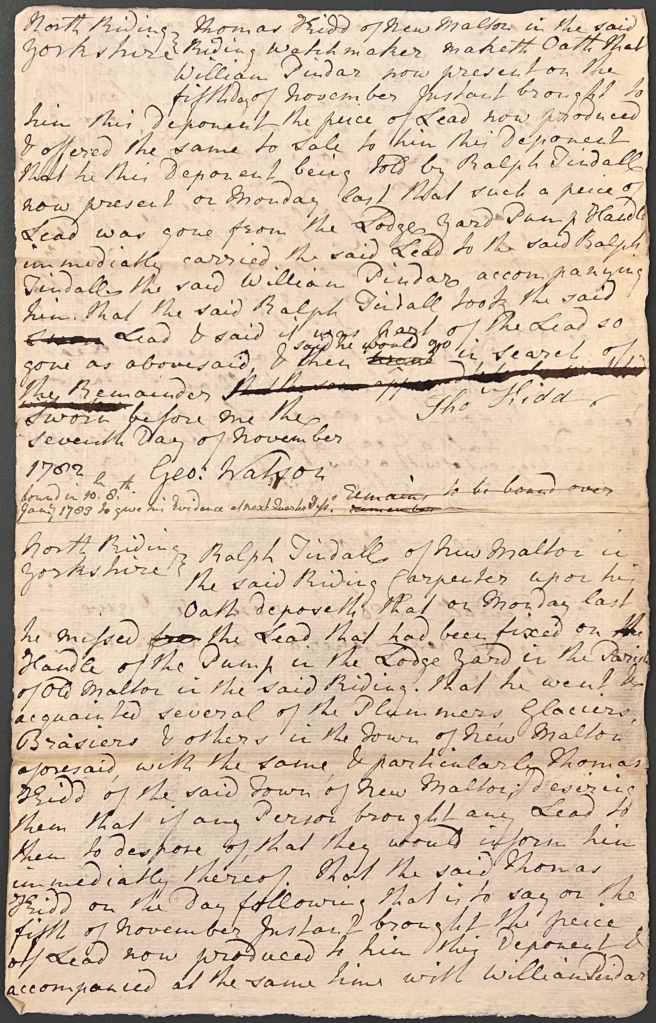 North Riding Thomas Kidd of New Malton in the said
Yorkshire Riding Watchmaker maketh Oath that
William Pindar now present on the
fifth day of November Instant brought to
him this Deponent the peice of Lead now produced
& offered the same to Sale to him this Deponent
that he this Deponent being told by Ralph Tindall
now present on Monday last that such a peice of
Lead was gone from the Lodge Yard Pump Handle
immediatly carried the said Lead to the said Ralph
Tindall the said William Pindar accompanying
him. that the said Ralph Tindall took the said
Lead & said it was part of the Lead so
said he would go
gone as abovesaid & then in search of
the Remainder
Tho Kidd
Sworn before me the
seventh Day of November
1782 Geo: Watson
bound in 10. 8th
Jany 1783 to give his Evidence at next Quarter Sess. Remains to be bound over
North Riding Ralph Tindall of New Malton in
Yorkshire the said Riding Carpenter upon his
Oath deposeth that on Monday last
he missed the Lead that had been fixed on the
Handle of the Pump in the Lodge Yard in the Parish
of Old Malton in the said Riding. that he went &
acquainted several of the Plummers, Glaciers,
Brasiers & others in the Town of New Malton
aforesaid, with the same, & particularly Thomas
Kidd of the said Town of New Malton, desiring
them that if any Person brought any Lead to
them to despose of, that they would inform him
immediatly thereof. That the said Thomas
Kidd on the Day following that is to say on the
fifth of November Instant brought the peice
of Lead now produced to him this Deponent &
accompanied at the same time with William Pindar